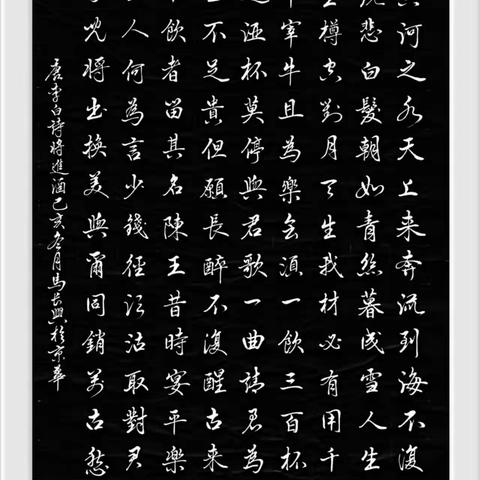 河之水天上来奔流到海不復
悲白髮朝如青丝暮成雪人生
樽空對月天生我材必有用千
宰牛且為樂会須一飲三百杯
酒杯莫停與君歌一曲請君為
不足貴但願長醉不復醒古来
飲者留其名陳王昔時宴平樂
人何為言少錢徑須沽取對君
兒將出換美與爾同銷萬古愁
唐李白诗將進酒己亥冬月馬長興於京華